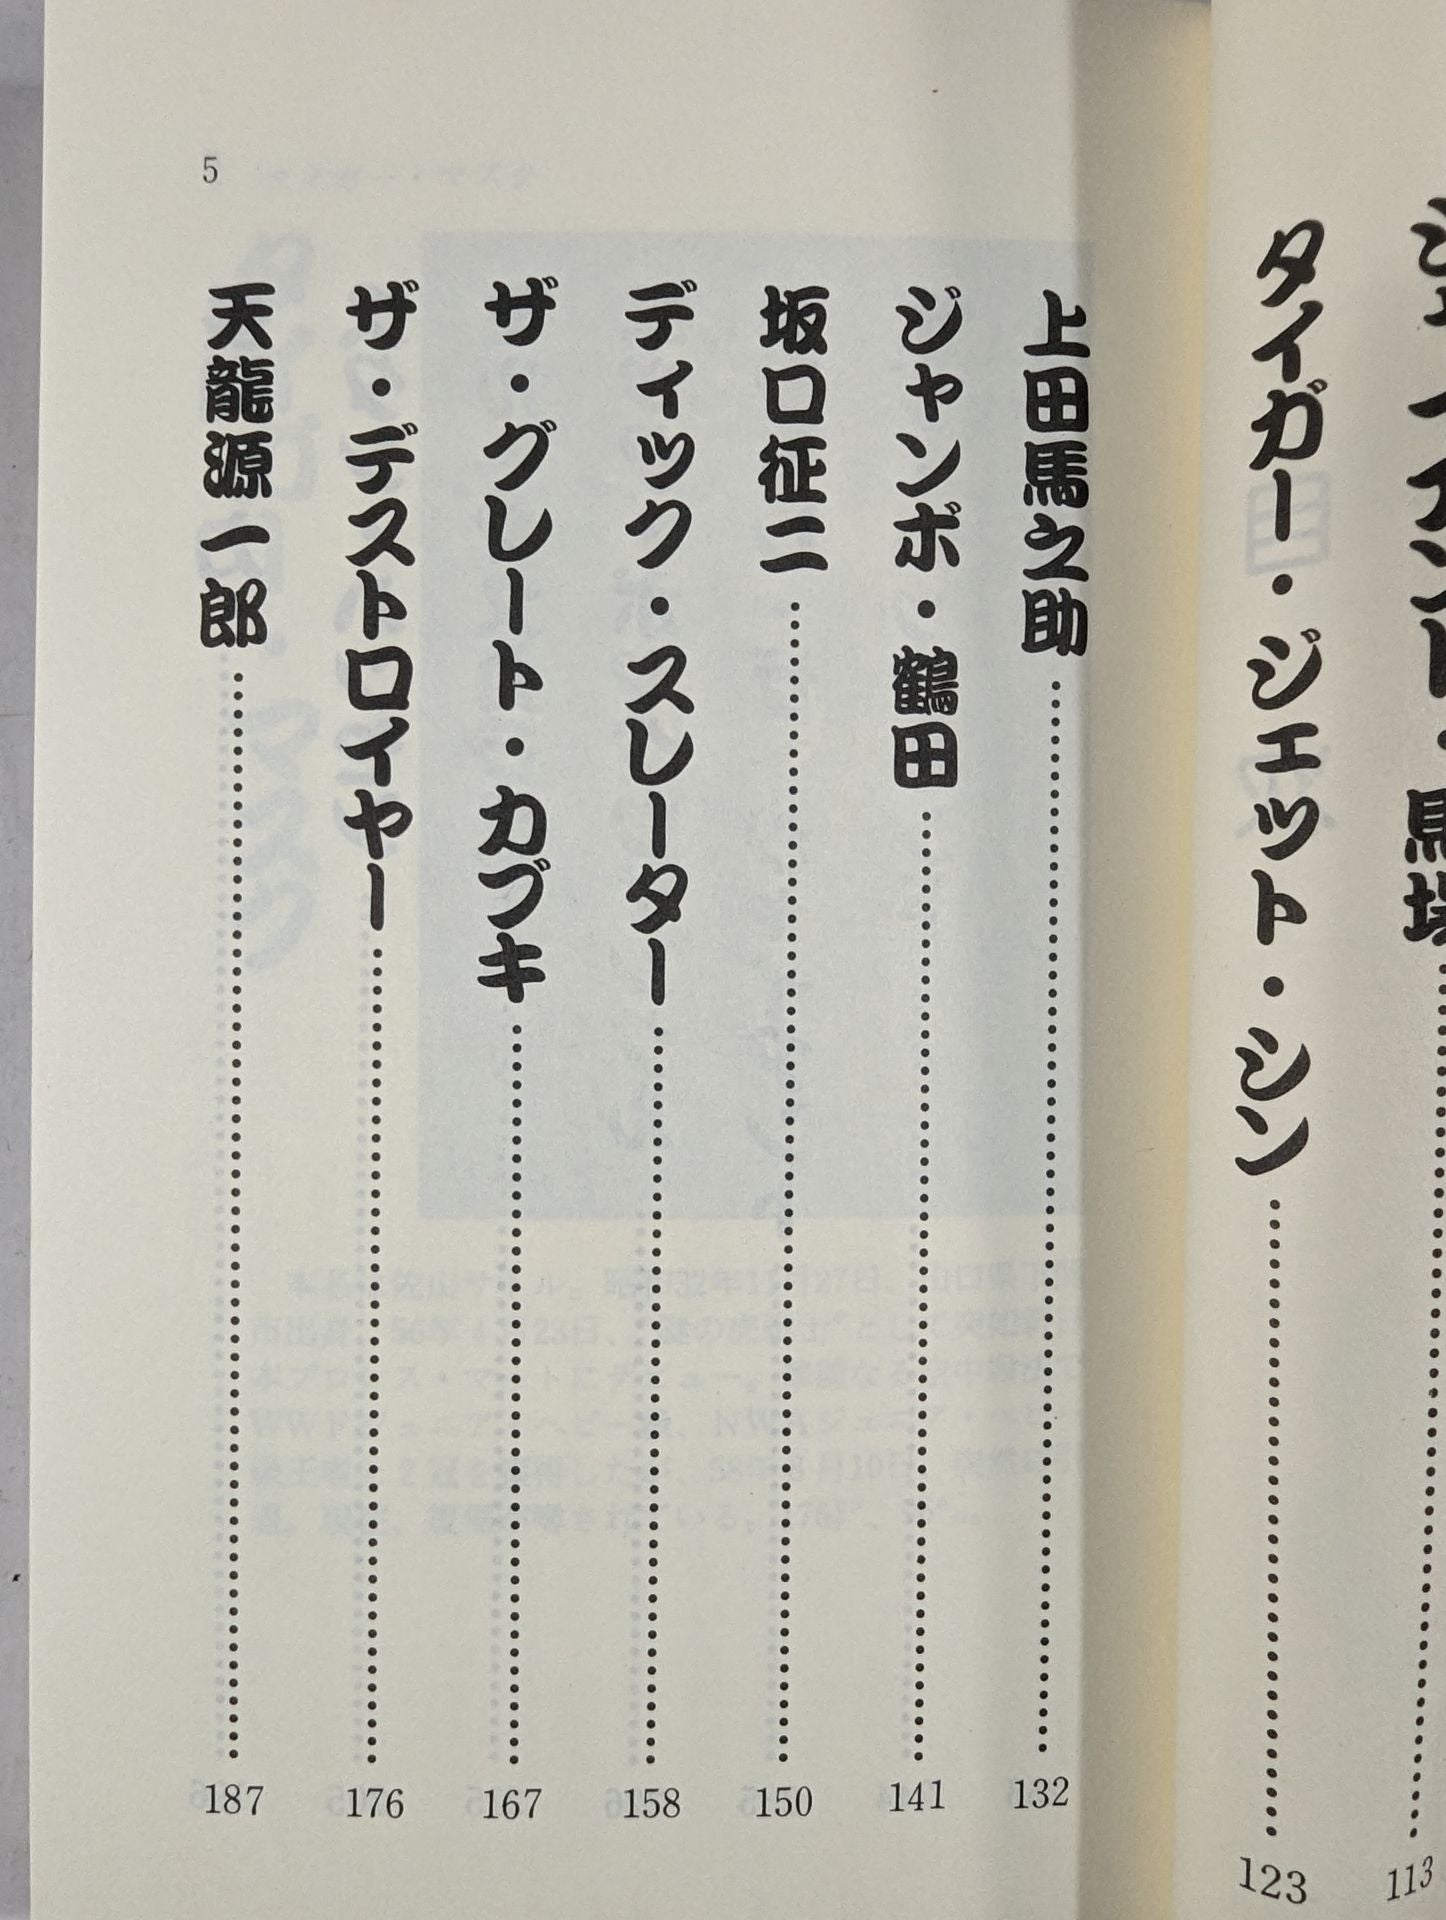 ジャイアント・馬場……113
タイガー・ジェット・シン……123
上田馬之助……132
ジャンボ・鶴田……141
坂口征二……150
ディック・スレーター……158
ザ・グレート・カブキ……167
ザ・デストロイヤー……176
天龍源一郎……187
5